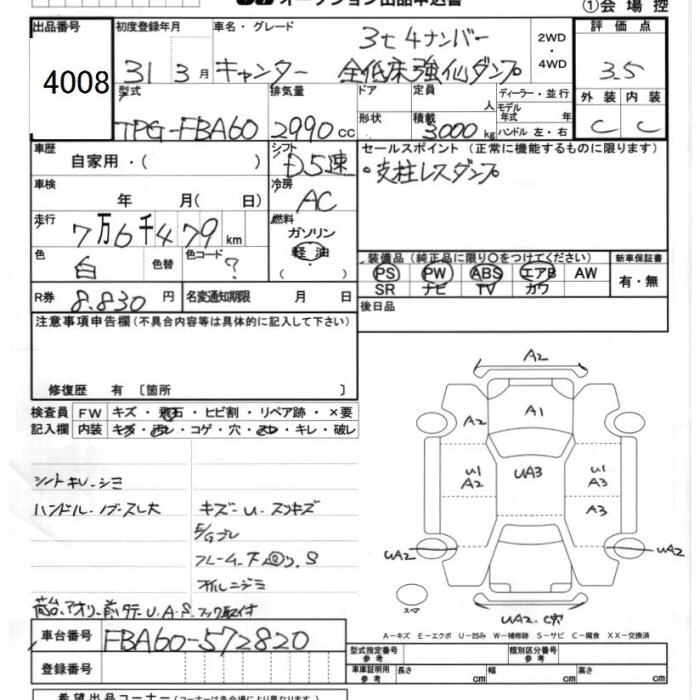 ①会場控
出品番号 4008
初度登録年月 31 3月
車名・グレード 3t 4ナンバー
キャンター 全低床強化ダンプ
2WD・4WD
評価点 3.5
型式 TPG-FBA60
排気量 2990 cc
ドア
形状
定員 人
積載 3000 kg
ディーラー・並行
モデル年式 年
ハンドル 左・右
外装 内装
C C
車歴 自家用・( )
シフト D5速
セールスポイント (正常に機能するものに限ります)
・支柱レスダンプ
車検 年 月( 日)
冷房 AC
走行 7万6千479 km
燃料 ガソリン
軽油
色 白 色替 色コード ?
装備品 (純正品に限り○をつけてください)
PS PW ABS エアB AW
SR ナビ TV カワ
新車保証書
有・無
R券 8.830 円
名変通知期限 月 日
後日品
注意事項申告欄 (不具合内容等は具体的に記入して下さい)
修復歴 有 〔箇所 〕
検査員記入欄
FW キズ・飛石・ヒビ割・リペア跡・×要
内装 キズ・汚レ・コゲ・穴・・キレ・破レ
シートキレ・シミ
ハンドル・ノブ・スレ大
キズ・U・スリキズ
F/Gブレ
S
オイルニジミ
U.A.S. 取付
A2
A1
A2
U1
A2
UA3
U1
A3
A3
UA2
UA2
スペア
UA2.
A-キズ E-エクボ U-凹み W-補修跡 S-サビ C-腐食 XX-交換済
車台番号 FBA60-572820
登録番号
型式指定番号 参考
類別区分番号 参考
車庫証明用 参考 長さ cm 幅 cm 高さ cm